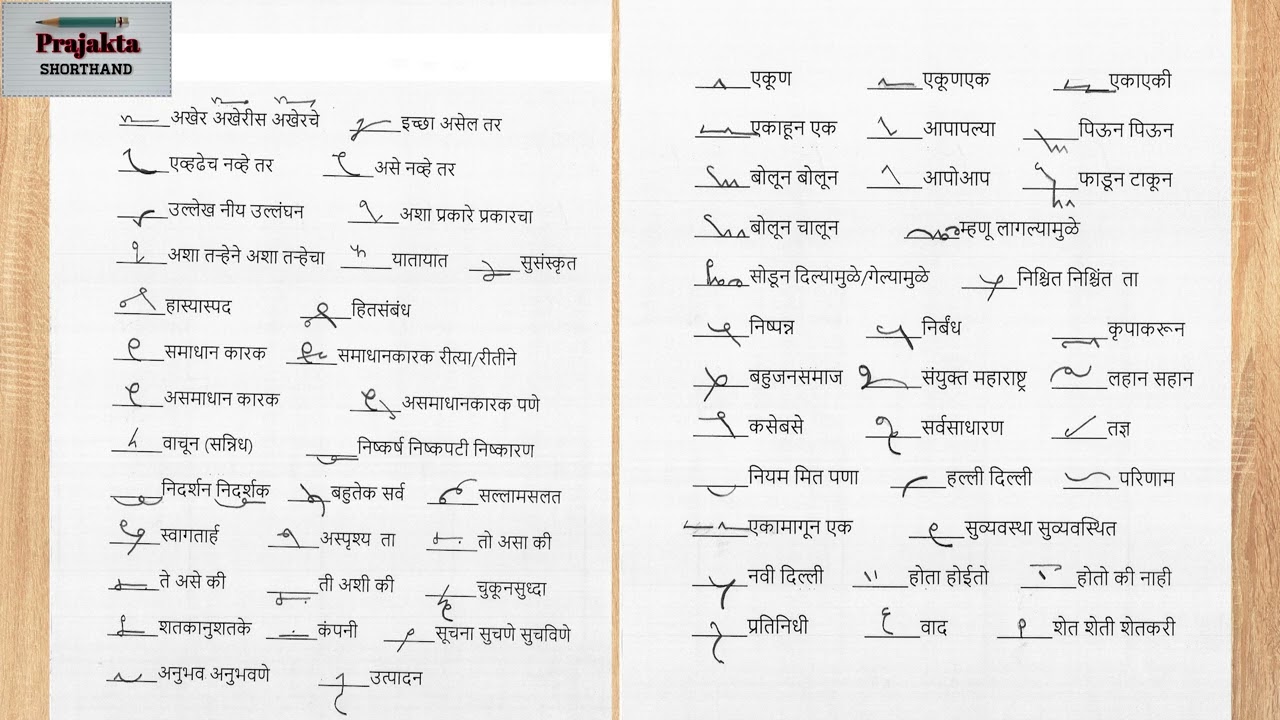 Prajakta
SHORTHAND
अखेर अखेरीस अखेरचे इच्छा असेल तर
एव्हढेच नव्हे तर असे नव्हे तर
उल्लेख नीय उल्लंघन अशा प्रकारे प्रकारचा
अशा तऱ्हेने अशा तऱ्हेचा यातायात सुसंस्कृत
हास्यास्पद हितसंबंध
समाधान कारक समाधानकारक रीत्या/रीतीने
असमाधान कारक असमाधानकारक पणे
वाचून (सन्निध) निष्कर्ष निष्कपटी निष्कारण
निदर्शन निदर्शक बहुतेक सर्व सल्लामसलत
स्वागतार्ह अस्पृश्य ता तो असा की
ते असे की ती अशी की चुकूनसुध्दा
शतकानुशतके कंपनी सूचना सुचणे सुचविणे
अनुभव अनुभवणे उत्पादन
एकूण एकूणएक एकाएकी
एकाहून एक आपापल्या पिऊन पिऊन
बोलून बोलून आपोआप फाडून टाकून
बोलून चालून म्हणू लागल्यामुळे
सोडून दिल्यामुळे/गेल्यामुळे निश्चित निश्चिंत ता
निष्पन्न निर्बंध कृपाकरून
बहुजनसमाज संयुक्त महाराष्ट्र लहान सहान
कसेबसे सर्वसाधारण तज्ञ
नियम मित पणा हल्ली दिल्ली परिणाम
एकामागून एक सुव्यवस्था सुव्यवस्थित
नवी दिल्ली होता होईतो होतो की नाही
प्रतिनिधी वाद शेत शेती शेतकरी